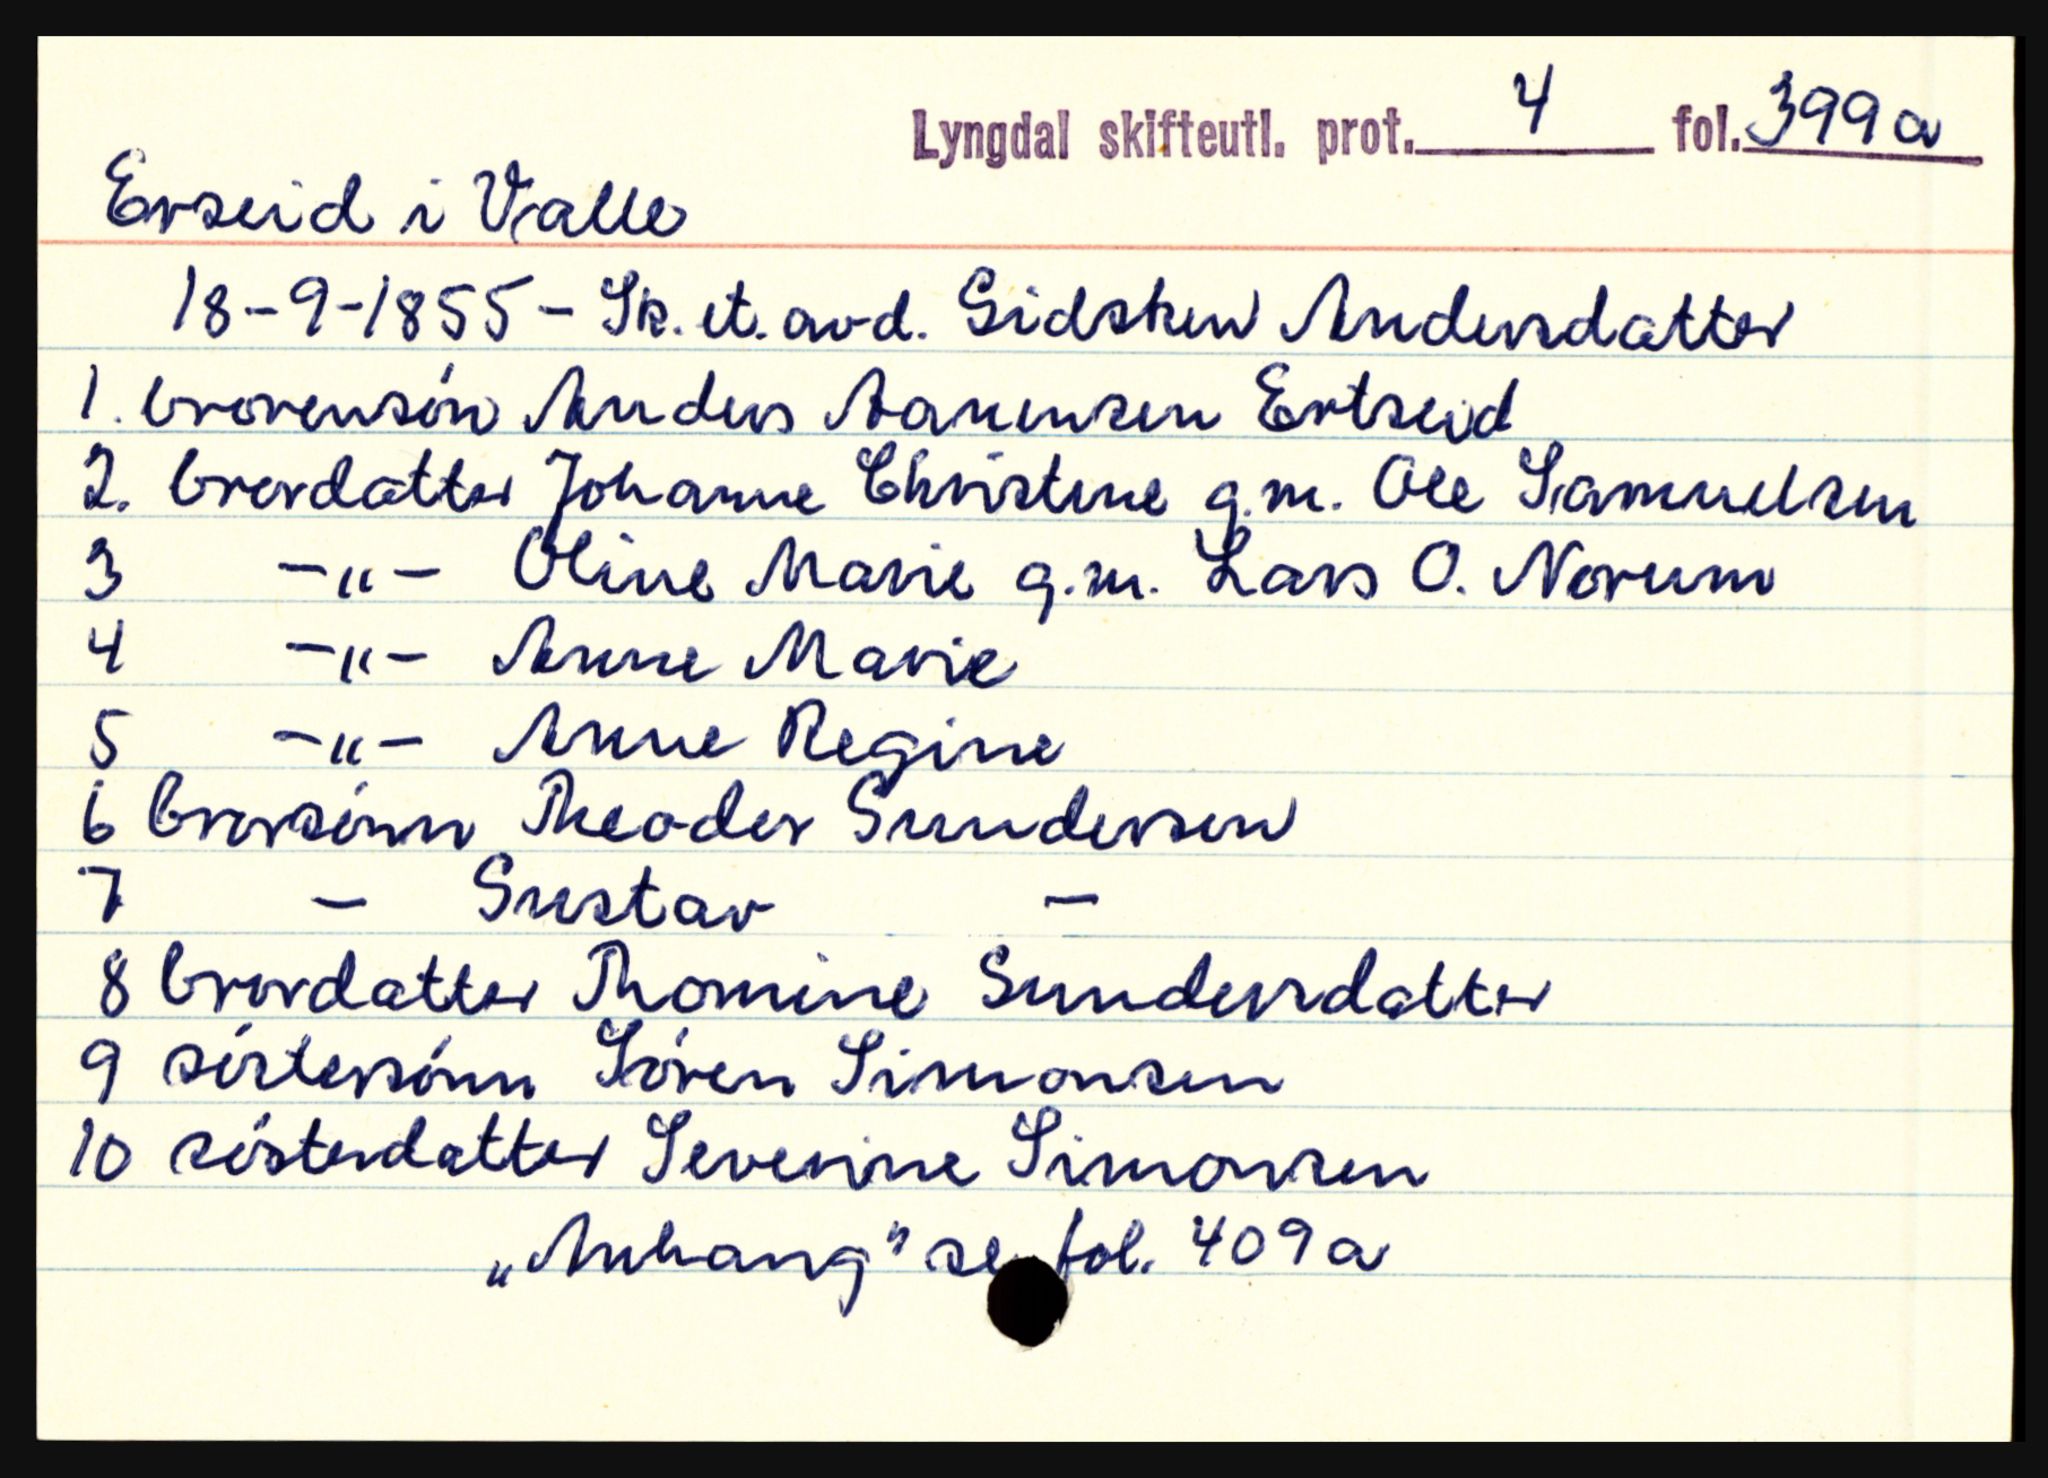 Lyngdal skifteutl. prot. 4 fol. 399a
Erseid i Valle
18-9-1855 - Sk. et. avd. Sidsken Andersdatter
1. brorensón Anders Aanensen Ertseid
2. brordatter Johanne Christine g.m. Ole Samuelsen
3 -"- Oline Marie g.m. Lars O. Norum
4 -"- Anne Marie
5 -"- Anne Regine
6 brorsónn Theoder Gundersen
7 - Gustav -
8 brordatter Thomine Gundersdatter
9 sóstersónn Sóren Simonsen
10 sósterdatter Severine Simonsen
„Anhang" se fol. 409a